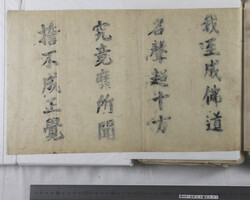 我至成佛道
名聲超十方
究竟靡所聞
誓不成正覺